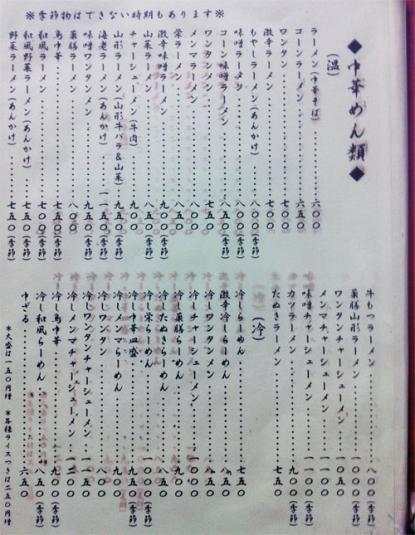 ◆中華めん類◆
(温)
ラーメン(中華そば)……六〇〇
コーンラーメン……六五〇
ワンタン……七〇〇
激辛ラーメン……七〇〇
もやしラーメン(あんかけ)……八〇〇(季節)
味噌ラーメン……八〇〇(季節)
コーン味噌ラーメン……八五〇(季節)
ワンタンメン……七五〇
メンマラーメン……八〇〇
栄ラーメン……八五〇
激辛味噌ラーメン……九〇〇(季節)
山菜ラーメン……八五〇(季節)
チャーシューメン(牛肉)……九〇〇
山形ラーメン(山形牛バラ&山菜)……九五〇
海老ラーメン(あんかけ)……一一五〇(季節)
味噌ワンタンメン……九五〇(季節)
薬膳ラーメン……八〇〇
鳥中華……七五〇(季節)
和風ラーメン……七〇〇(季節)
和風野菜ラーメン(あんかけ)……八五〇(季節)
野菜ラーメン(あんかけ)……七五〇(季節)
牛もつラーメン……八〇〇(季節)
薬膳山形ラーメン……一一五〇
ワンタンチャーシューメン……一〇五〇
メンマチャーシューメン……一一〇〇
味噌チャーシューメン……一一〇〇(季節)
カツラーメン……九〇〇(季節)
たぬきラーメン……七五〇
(冷)
冷しらーめん……七五〇
激辛冷しらーめん……八五〇
冷しワンタンメン……九五〇
冷しチャーシューメン……一〇五〇
冷し薬膳らーめん……九五〇
冷したぬきらーめん……九〇〇(季節)
冷し栄らーめん……一〇〇〇(季節)
冷し中華四盛……九五〇(季節)
冷しメンマらーめん……九〇〇
冷しワンタン……九〇〇
冷しワンタンチャーシューメン……一一五〇
冷しメンマチャーシューメン……一二〇〇
冷し鳥中華……九〇〇(季節)
冷し和風らーめん……八五〇(季節)
中ざる……六五〇
＊大盛は一五〇円増 ＊各種ライスつきは二五〇円増
※季節物はできない時期もあります※